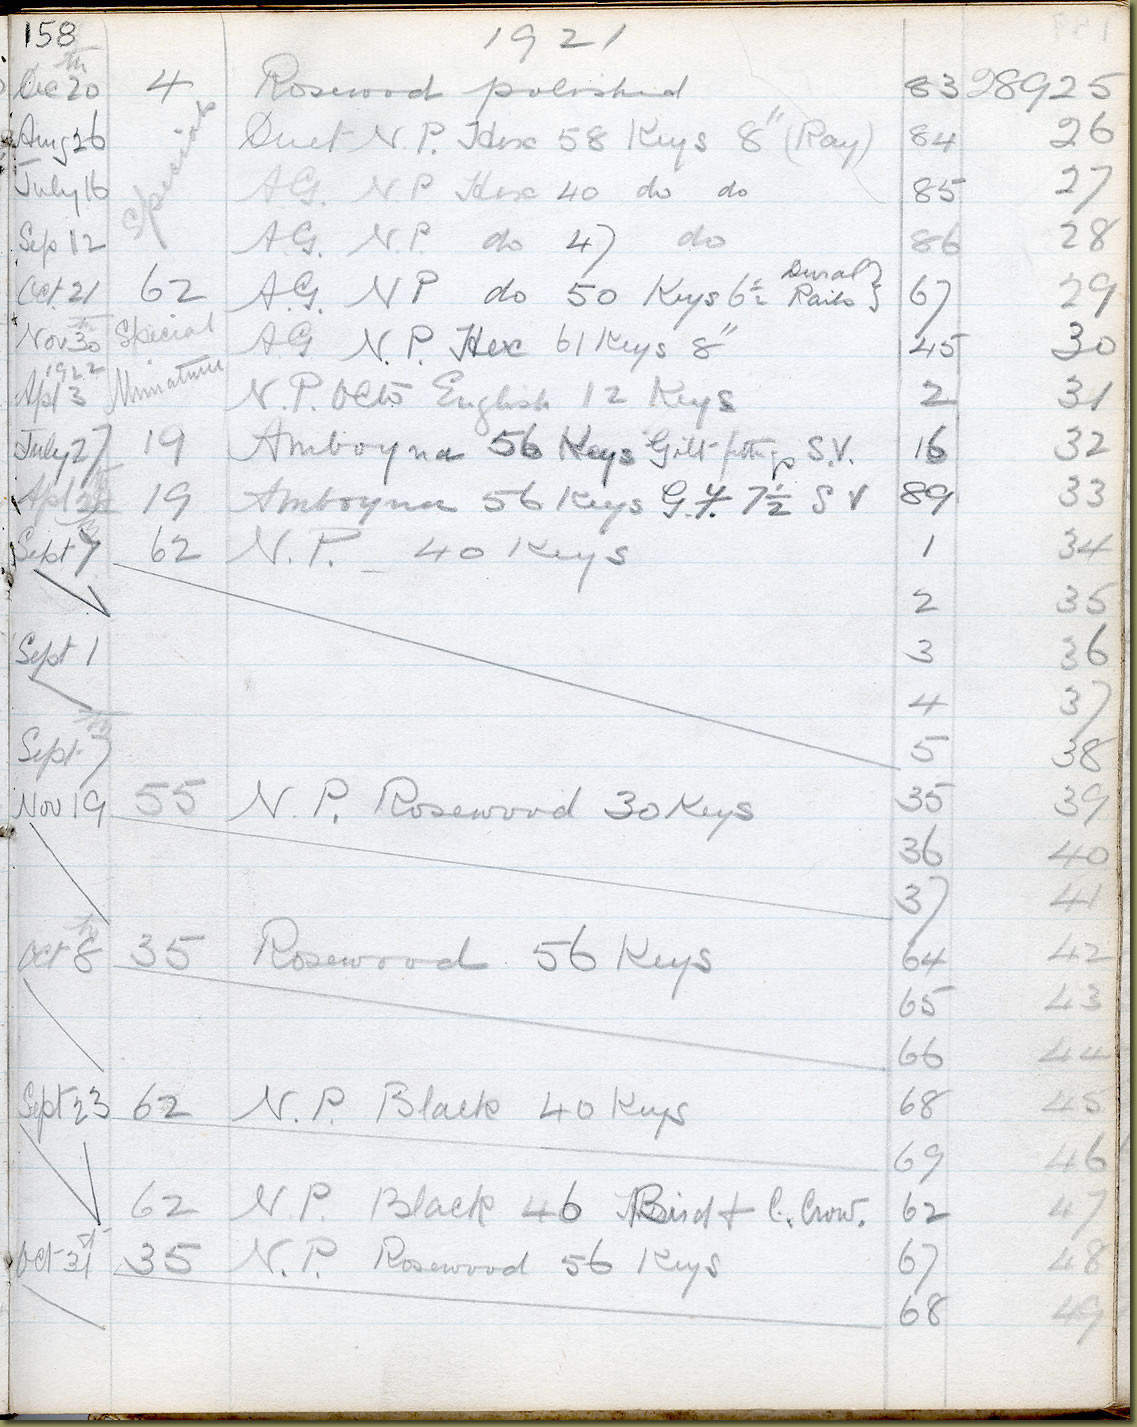 158 1921
Dec 20th 4 Rosewood polished 83 28925
Aug 26 Special Duet N.P. Hex 58 Keys 8" (Ray) 84 26
July 16 A.G. N P Hex 40 do do 85 27
Sep 12 A.G. N.P. do 47 do 86 28
Oct 21 62 A.G. N P do 50 Keys 6½ Dural Rails } 67 29
Nov 30th Special A G N.P. Hex 61 Keys 8" 45 30
1922
Apl 3 Miniature N.P. Octo English 12 Keys 2 31
July 27 19 Amboyna 56 Keys Gilt fittings S.V. 16 32
Apl 19 Amboyna 56 Keys G.F. 7½ S V 89 33
Sept 7 62 N.P. _ 40 Keys 1 34
2 35
Sept 1 3 36
4 37
Sept 7th 5 38
Nov 19 55 N.P. Rosewood 30 Keys 35 39
36 40
37 41
Oct 8th 35 Rosewood 56 Keys 64 42
65 43
66 44
Sept 23 62 N.P. Black 40 Keys 68 45
69 46
62 N.P. Black 46 Bird & C. Crow. 62 47
Oct 31st 35 N.P. Rosewood 56 Keys 67 48
68 49